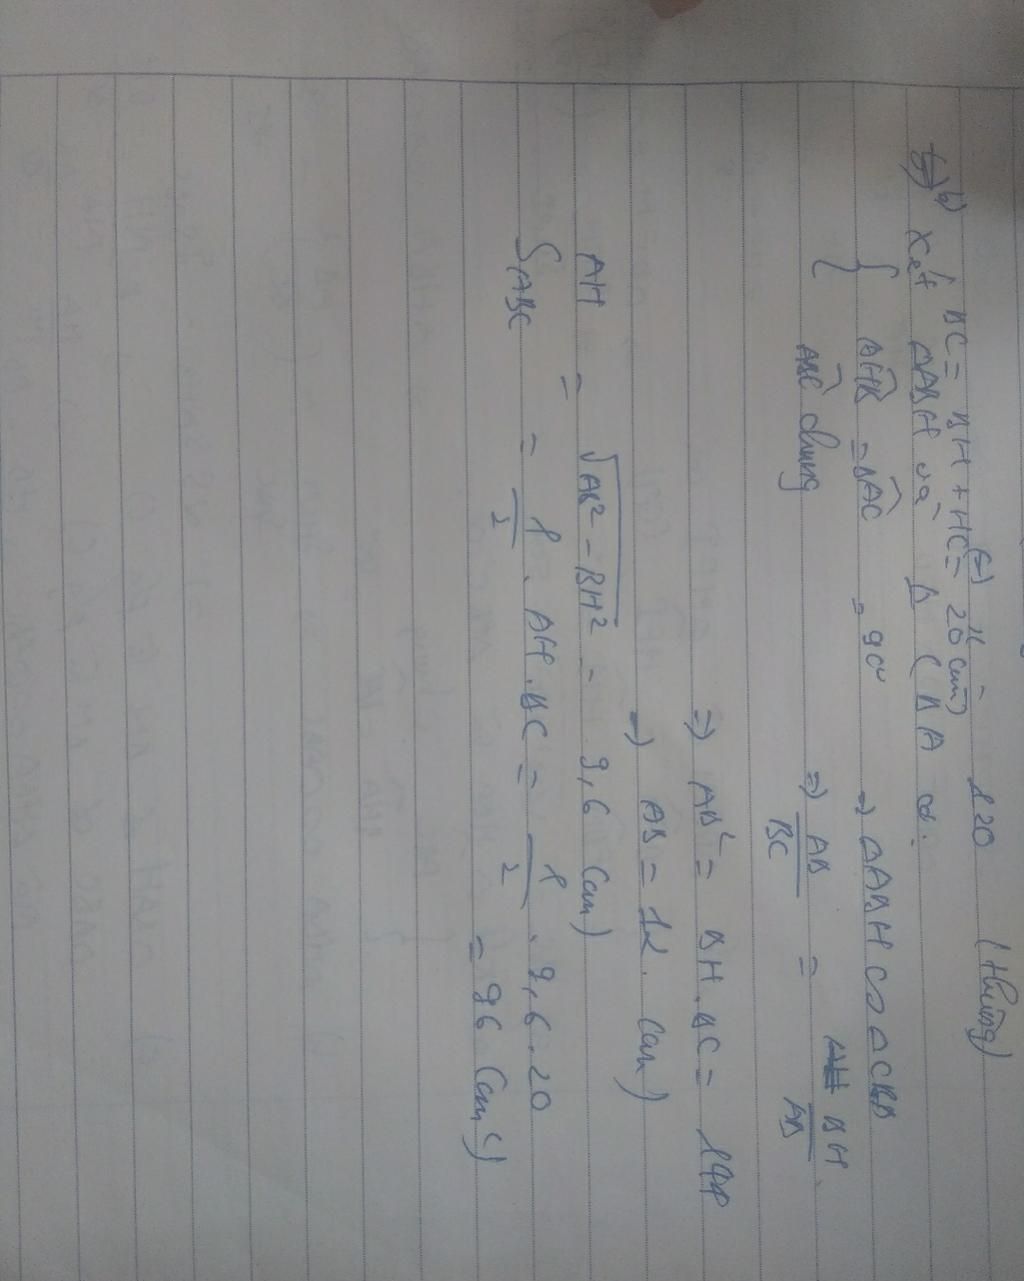 120 (thùng)
b) BC = BH + HC = 20 (cm)
Xét ΔABH và Δ CBA có:
{ AHB = BAC = 90°
ABC chung
=> ΔABH ∽ ΔCBA
=> AB/BC = BH/AB
=> AB² = BH.BC = 144
=> AB = 12 (cm)
AH = √AB² - BH² = 9,6 (cm)
S ABC = 1/2 . AH.BC = 1/2 . 9,6.20
= 96 (cm²)